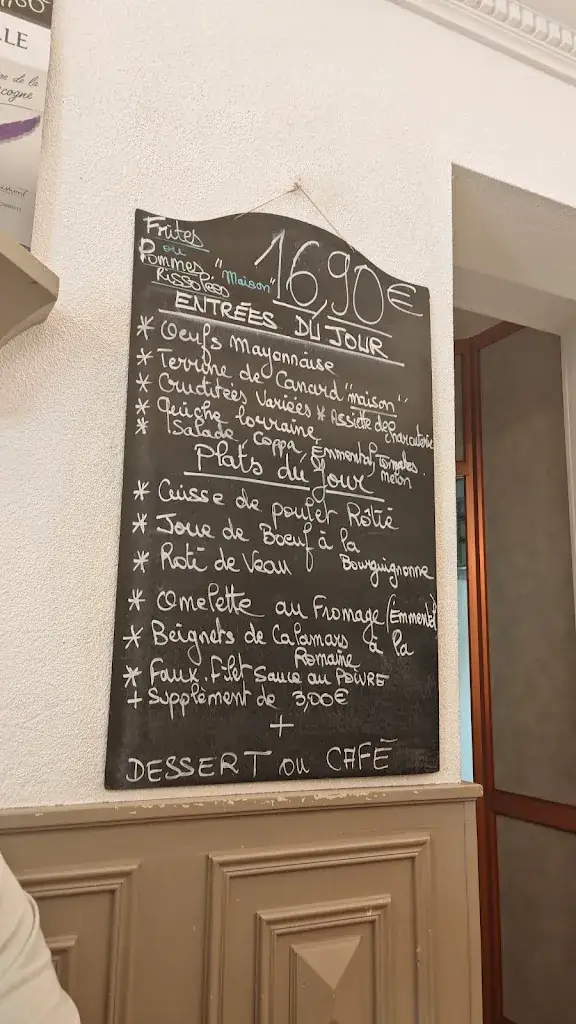 LLE
re de la
cogne
Frites
ou
Pommes "Maison"
RISSOLées
16,90€
ENTRÉES DU JOUR
* Oeufs Mayonnaise
* Terrine de Canard "maison"
* Crudités Variées * Assiette de charcuterie
* Quiche lorraine
* Salade, Coppa, Emmental, Tomates.
melon
Plats du jour
* Cuisse de poulet Rôtie
* Joue de Boeuf à la
Bourguignonne
* Roti de Veau
* Omelette au Fromage (Emmental)
* Beignets de Calamars à la
Romaine
* Faux.Filet Sauce au POIVRE
+ Supplèment de 3,00€
+
DESSERT ou CAFÉ